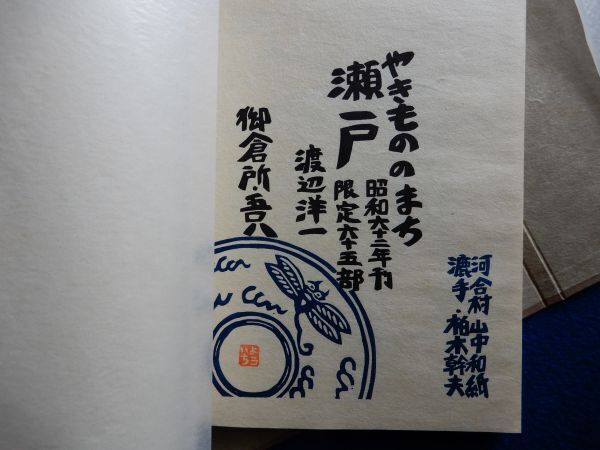 やきもののまち
瀬戸
昭和六十二年刊
限定六十五部
渡辺洋一
御倉所・吾八
河合村 山中和紙
漉手・柏木幹夫
よう
いち